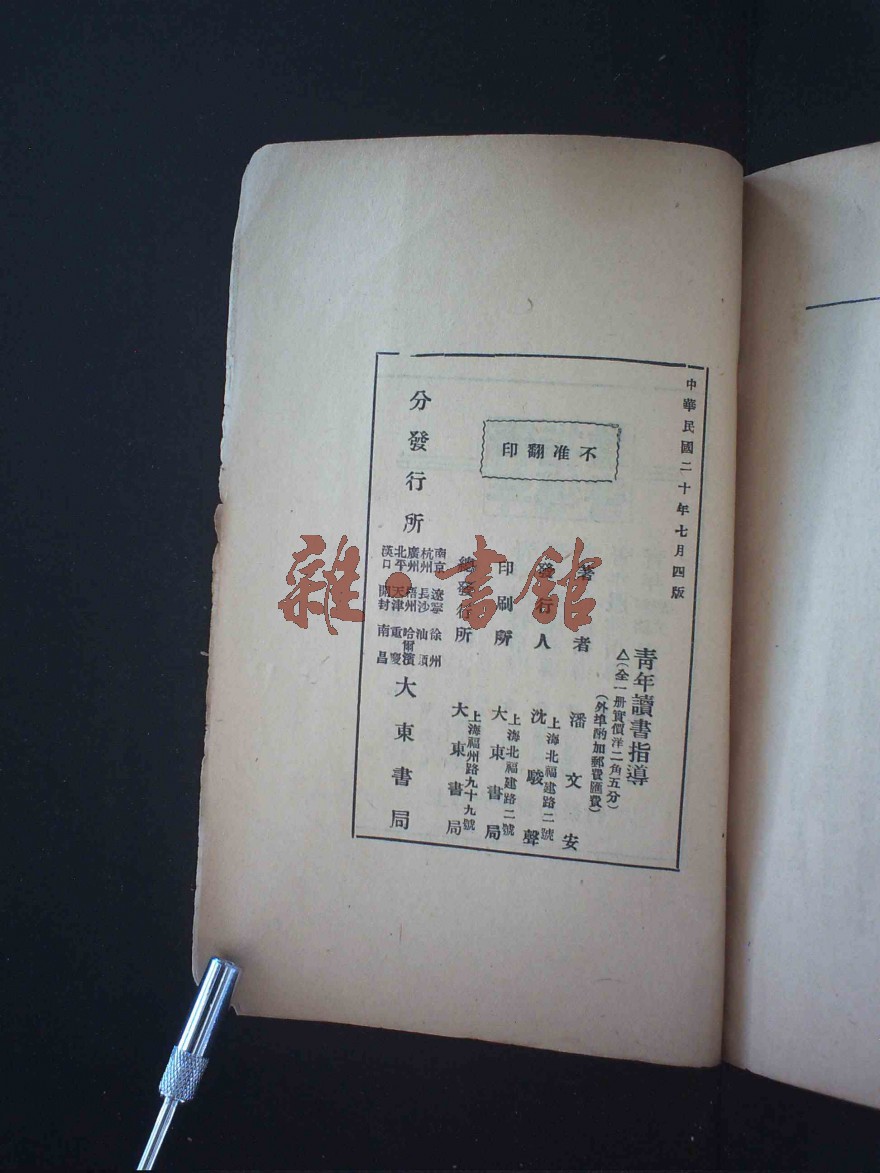 中華民國二十年七月四版
靑年讀書指導
△(全一册實價洋二角五分)
(外埠酌加郵費匯費)
不准翻印
著者 潘文安
發行人 上海北福建路二號 沈駿聲
印刷所 上海北福建路二號 大東書局
總發行所 上海福州路九十九號 大東書局
分發行所
南京 遼寧 徐州
杭州 長沙 汕頭
廣州 梧州 哈爾濱
北平 天津 重慶
漢口 開封 南昌
大東書局
雜·書館